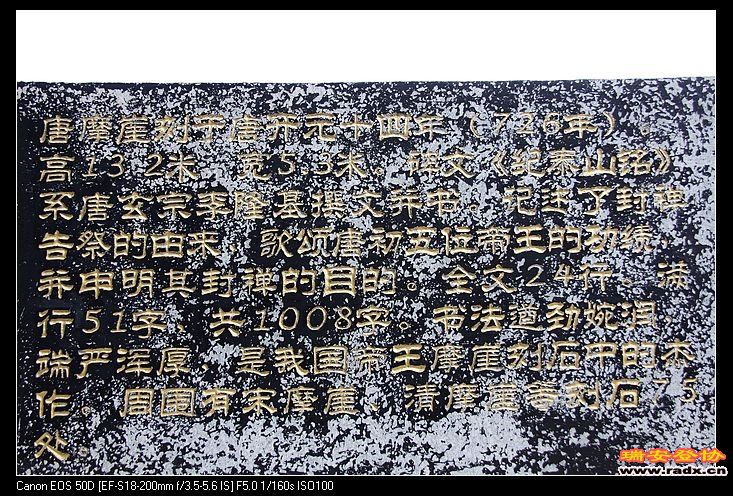 唐摩崖刻于唐开元十四年（726年）。
高13.2米，宽5.3米，碑文《纪泰山铭》
系唐玄宗李隆基撰文并书，记述了封禅
告祭的由来，歌颂唐初五位帝王的功绩，
并申明其封禅的目的。全文24行，满
行51字，共1008字。书法遒劲婉润，
端严浑厚，是我国帝王摩崖刻石中的杰
作。周围有宋摩崖、清摩崖等刻石75
处。
瑞安登协
www.radx.cn
Canon EOS 50D [EF-S18-200mm f/3.5-5.6 IS] F5.0 1/160s ISO100